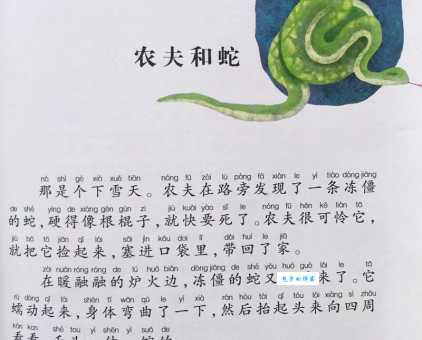 农夫和蛇
nà shì gè xià xuě tiān nóng fū zài lù páng fā xiàn le yì tiáo dòng jiāng
那是个下雪天。农夫在路旁发现了一条冻僵
de shé yìng de xiàng gēn gùn zi jiù kuài yào sǐ le nóng fū hěn kě lián tā
的蛇,硬得像根棍子,就快要死了。农夫很可怜它,
jiù bǎ tā jiǎn qǐ lái sāi jìn kǒu dai lǐ dài huí le jiā
就把它捡起来,塞进口袋里,带回了家。
zài nuǎn róng róng de lú huǒ biān dòng jiāng de shé yòu huó guò lái le tā
在暖融融的炉火边,冻僵的蛇又来了。它
rú dòng qǐ lái shēn tǐ wān qū le yí xià rán hòu tái qǐ tóu lái xiàng sì zhōu
蠕动起来,身体弯曲了一下,然后抬起头来向四周